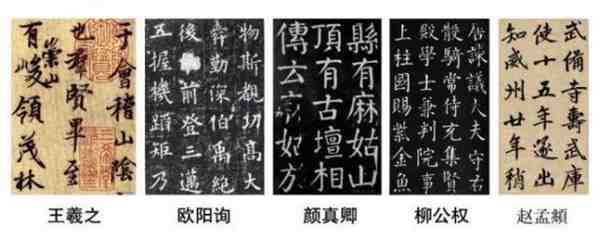 于會稽山陰
也羣賢畢至
有崇山峻領茂林
物斯覩功高大
舜勤深伯禹絶
後承前登三邁
五握機蹈矩乃
縣有麻姑山
頂有古壇相
傳云麻姑於
諫議大夫守右
散騎常侍充集賢
殿學士兼判院事
上柱國賜紫金魚
武備寺壽武庫
使十五年遂出
知威州廿年稍
王羲之
欧阳询
颜真卿
柳公权
赵孟頫